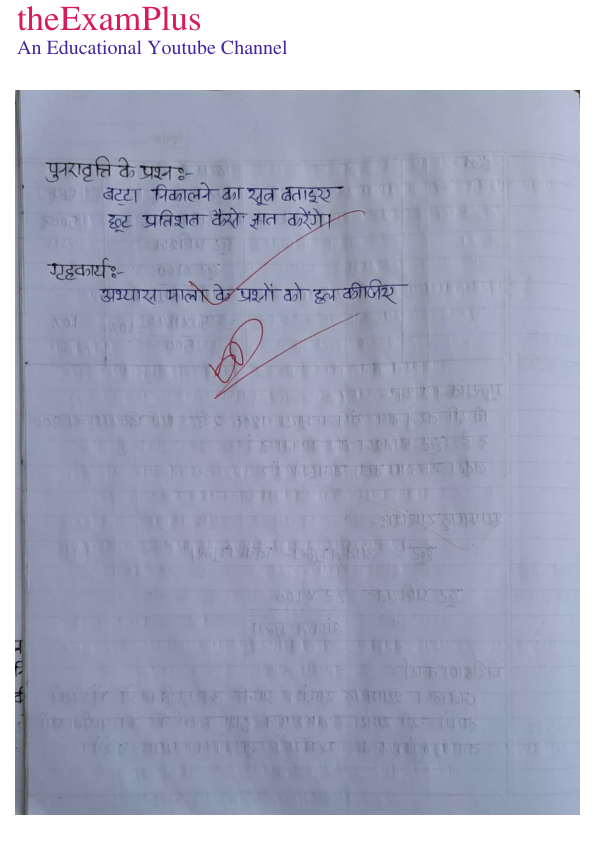 theExamPlus
An Educational Youtube Channel
पुनरावृत्ति के प्रश्न :-
बट्टा निकालने का सूत्र बताइए
छूट प्रतिशत कैसे ज्ञात करेंगे।
गृहकार्य :-
अभ्यास माला के प्रश्नों को हल कीजिए